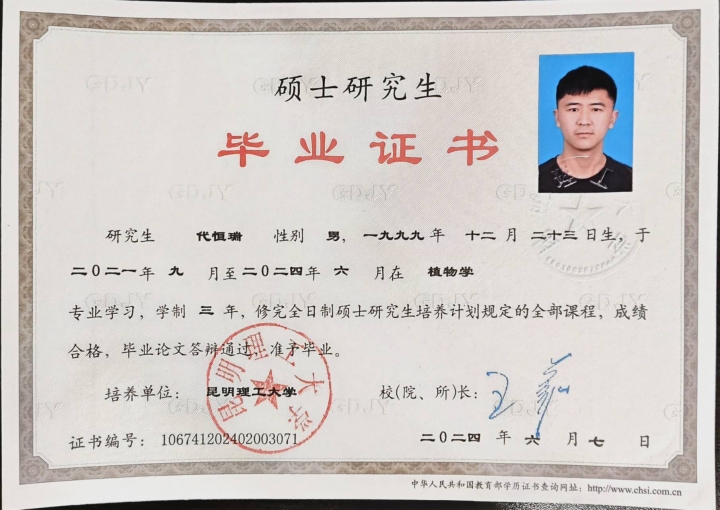 硕士研究生
毕业证书
研究生 代恒瑞 性别 男，一九九九年 十二月 二十三日生，于
二〇二一年 九 月至二〇二四年 六 月在 植物学
专业学习，学制 三 年，修完全日制硕士研究生培养计划规定的全部课程，成绩
合格，毕业论文答辩通过，准予毕业。
培养单位：昆明理工大学 校(院、所)长：
昆明理工大学
证书编号：106741202402003071 二〇二四 年 六 月 七 日
中华人民共和国教育部学历证书查询网址：http://www.chsi.com.cn